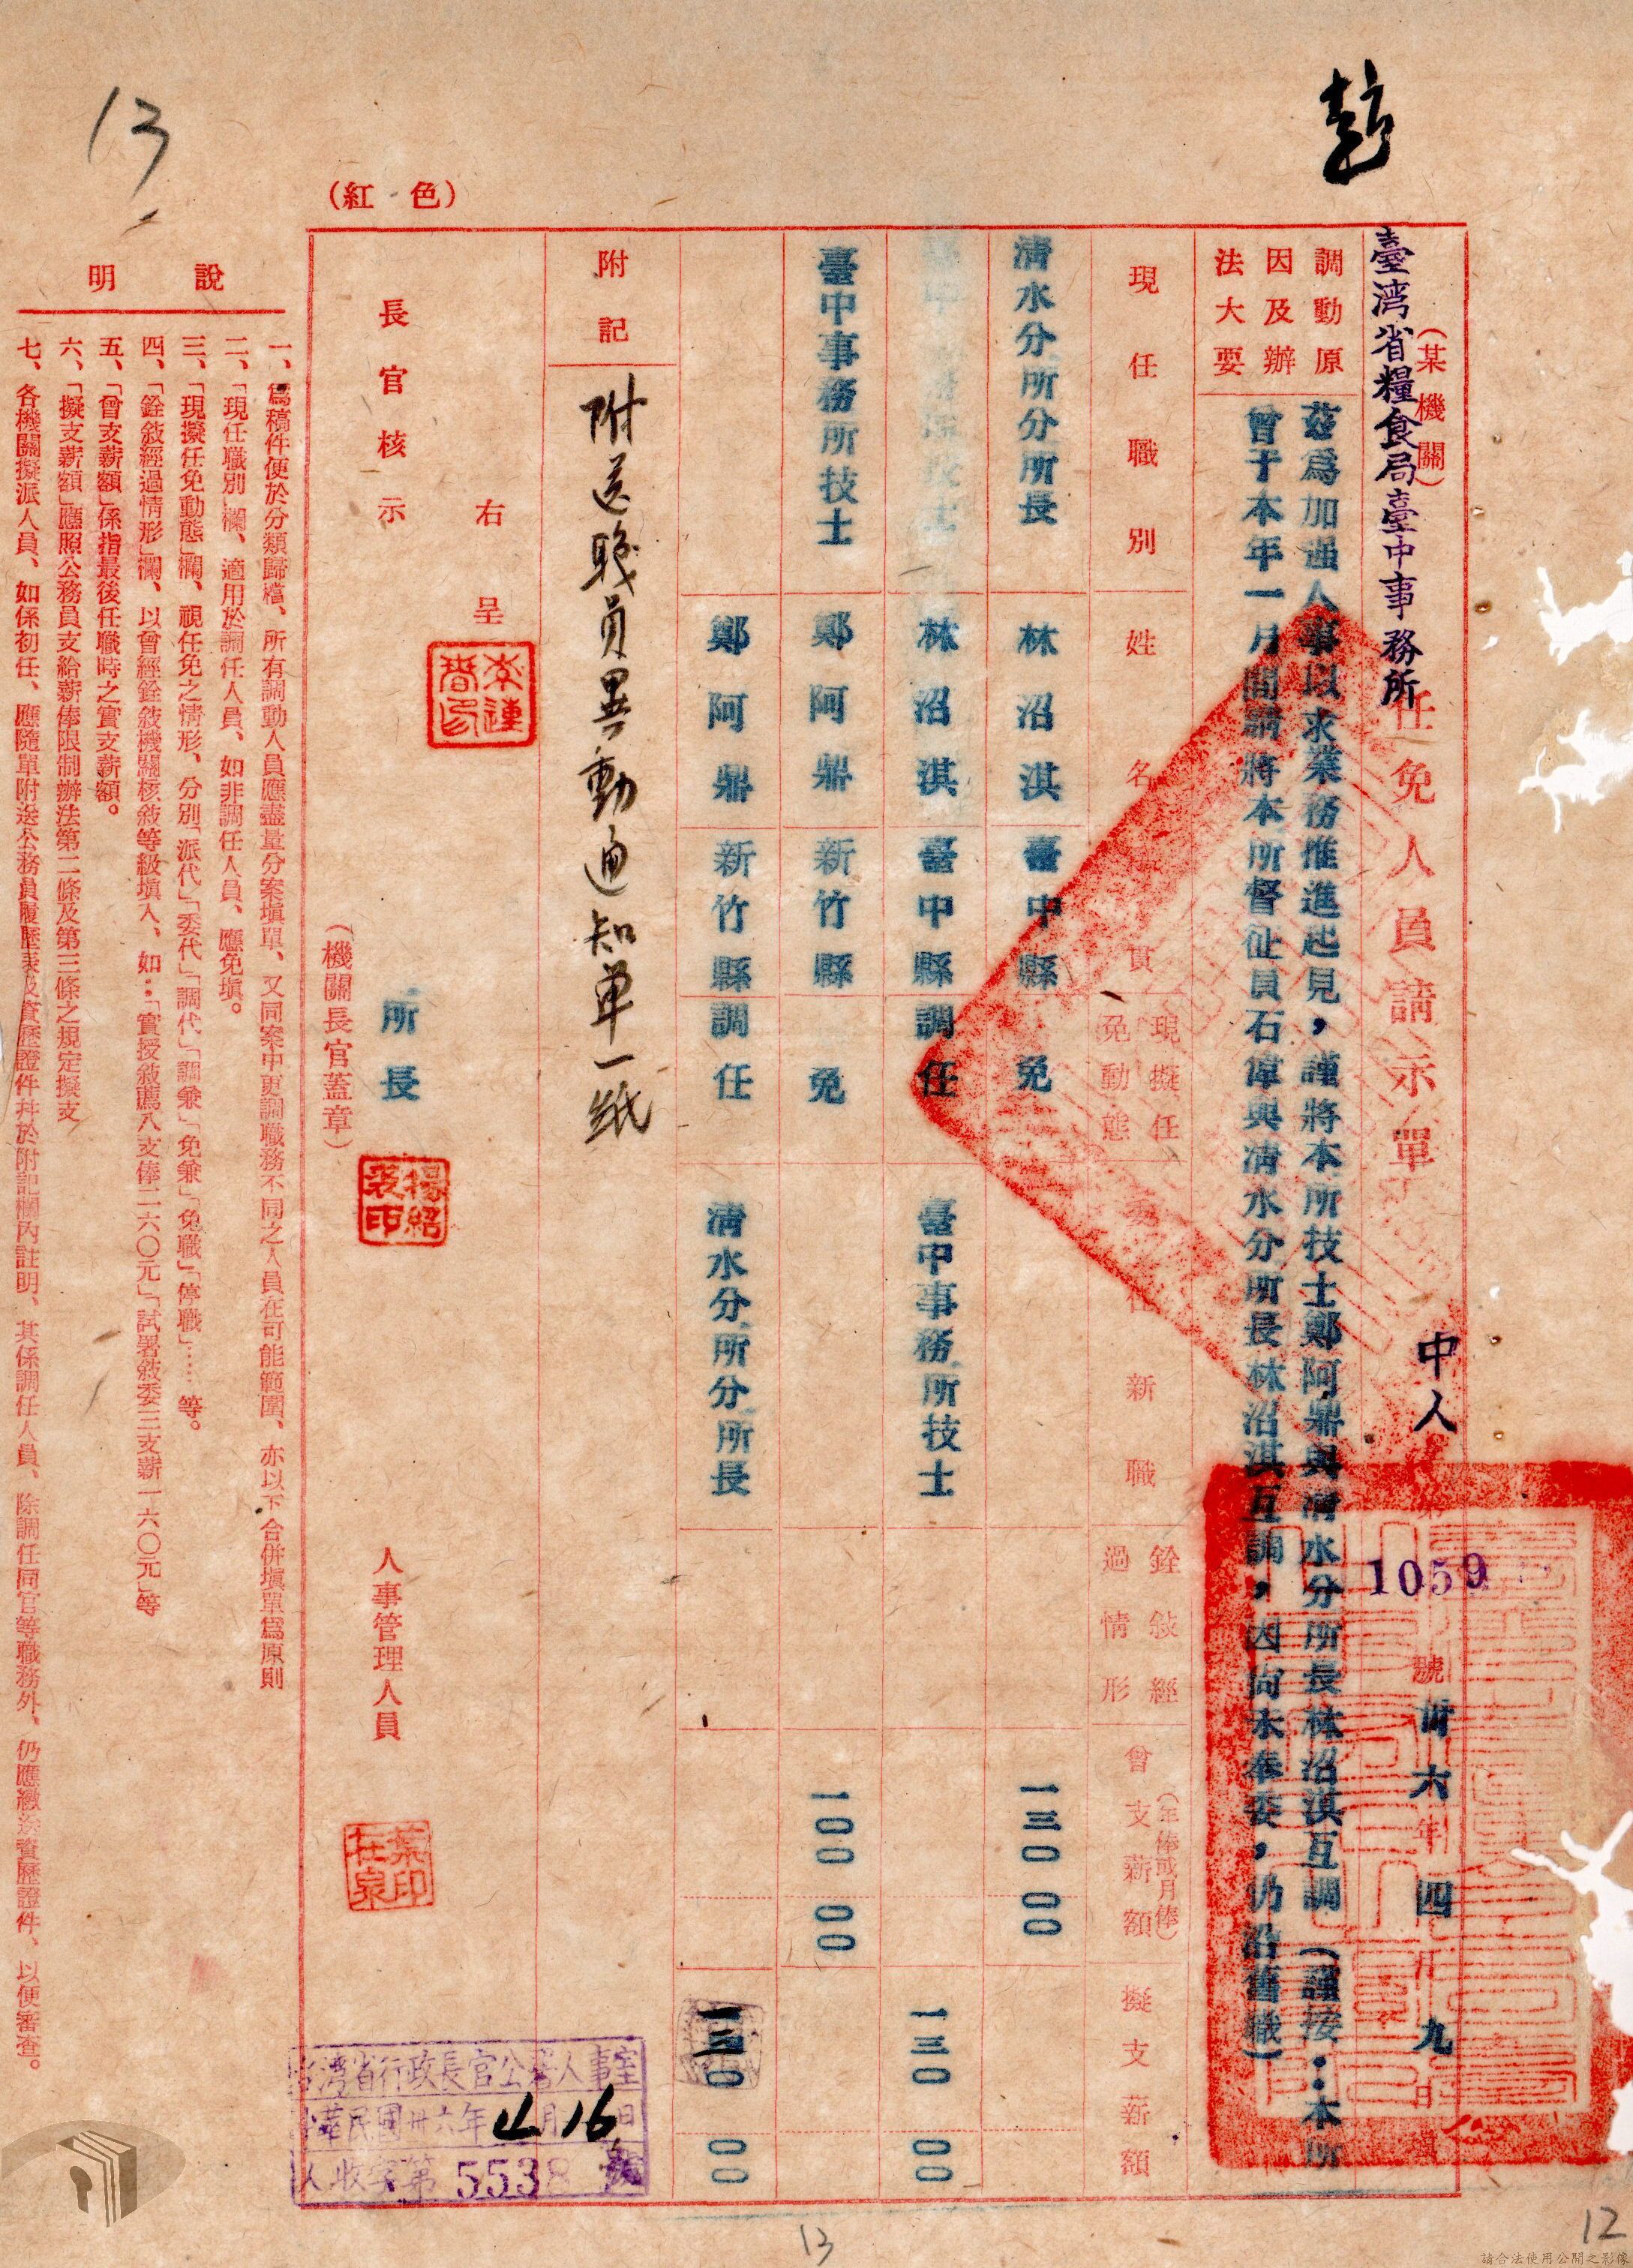 13
(紅色)
臺湾省糧食局臺中事務所
(某機關)
任免人員請示單
中人
第
1059
號
卅六年四月九日
調動原因及辦法大要
茲爲加强人事以求業務推進起見，謹將本所技士鄭阿鼎與清水分所長林沼淇互調(謹按：本所
曾于本年一月間請將本所督征員石偉與清水分所長林沼淇互調，因尚未奉委，仍沿舊職)
現任職別
姓名
籍貫
現擬任免動態
擬任新職
銓敍經過情形
曾支薪額(年俸或月俸)
擬支薪額
清水分所分所長 林沼淇 臺中縣 免 一三〇 〇〇
林沼淇 臺中縣 調任 臺中事務所技士 一三〇 〇〇
臺中事務所技士 鄭阿鼎 新竹縣 免 一〇〇 〇〇
鄭阿鼎 新竹縣 調任 清水分所分所長 一三〇 〇〇
附記
附送職員異動通知單一紙
右呈
長官核示
所長
楊紹裘印
(機關長官蓋章)
人事管理人員
台湾省行政長官公署人事室
中華民國卅六年4月16日
人收字第5538號
說明
一、爲稿件便於分類歸檔、所有調動人員應盡量分案塡單、又同案中更調職務不同之人員在可能範圍、亦以下合併塡單爲原則
二、「現任職別」欄、適用於調任人員、如非調任人員、應免塡。
三、「現擬任免動態」欄、視任免之情形、分別「派代」「委代」「調代」「調兼」「免兼」「免職」「停職」……等。
四、「銓敍經過情形」欄、以曾經銓敍機關核敍等級塡入、如：「實授敍薦八支俸二六〇元」「試署敍委三支薪一六〇元」等
五、「曾支薪額」係指最後任職時之實支薪額。
六、「擬支薪額」應照公務員支給薪俸限制辦法第二條及第三條之規定擬支
七、各機關擬派人員、如係初任、應隨單附送公務員履歷表及資歷證件幷於附記欄內註明、其係調任人員、除調任同官等職務外、仍應繳送資歷證件、以便審查。
13
12
請合法使用公開之影像